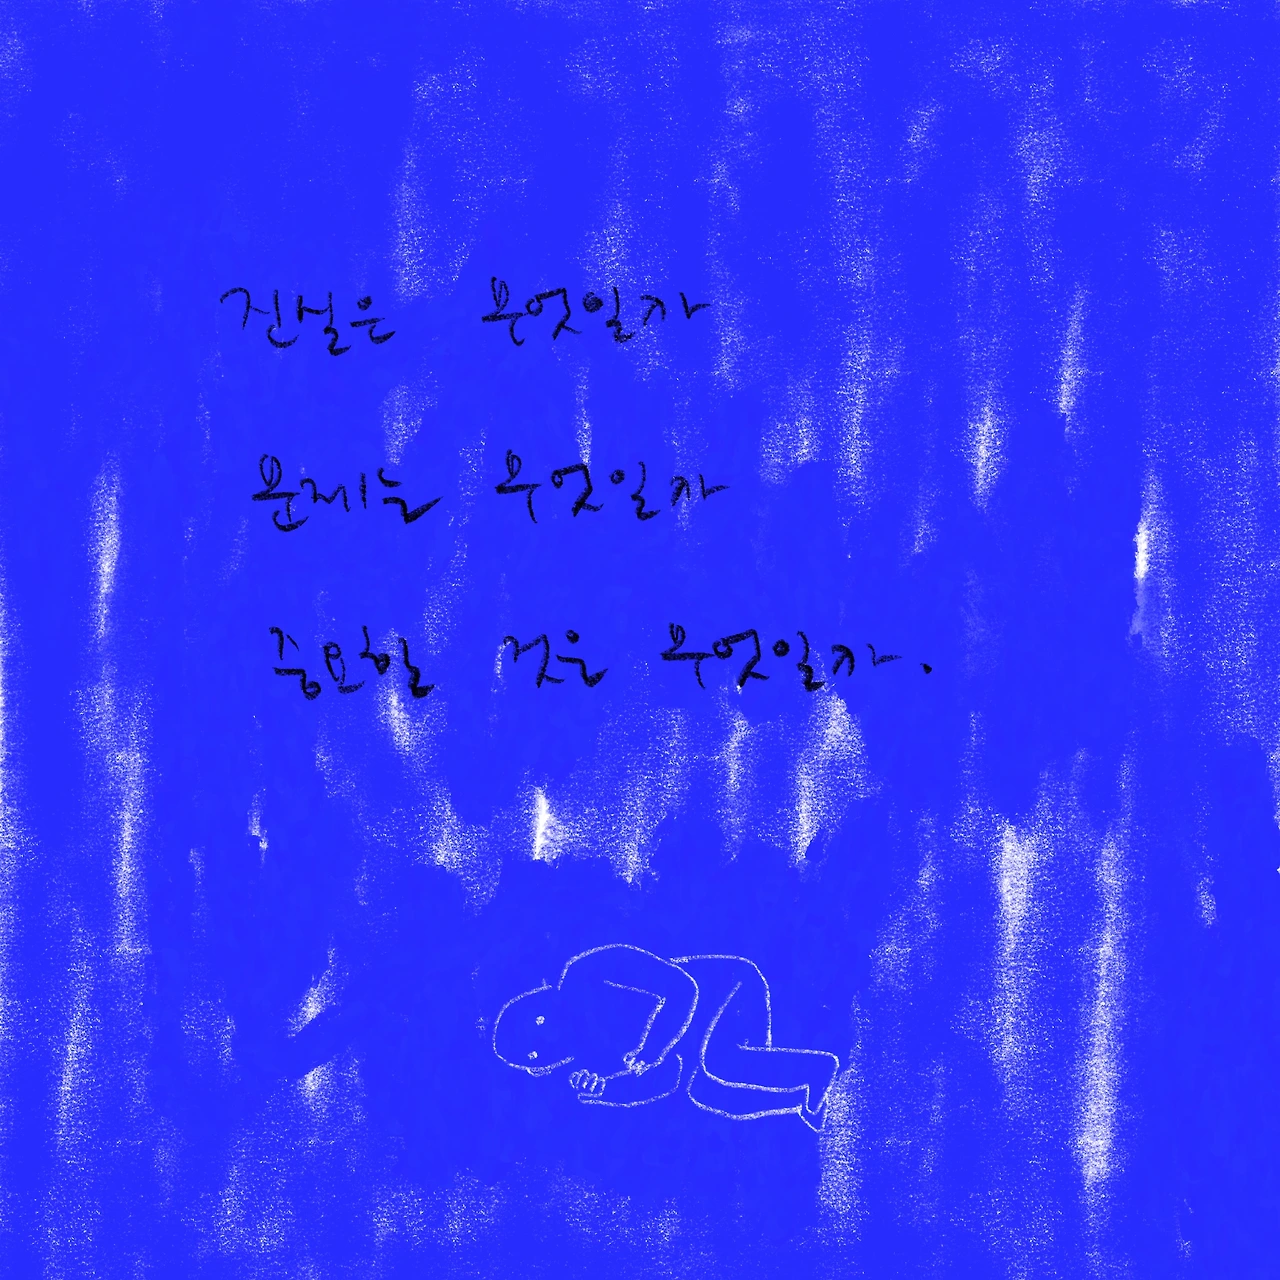 진실은 무엇일까
문제는 무엇일까
중요한 것은 무엇일까.